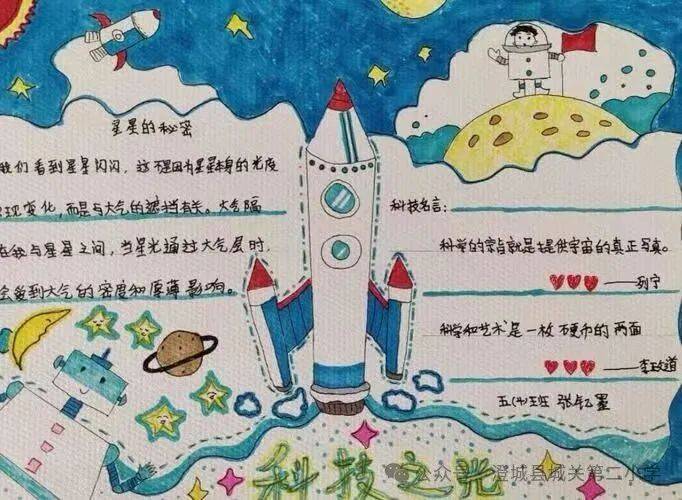 星星的秘密
我们看到星星闪闪，这不是因为星星本身的光度
出现变化，而是与大气的遮挡有关。大气隔
在我与星星之间，当星光通过大气层时，
会受到大气的密度和厚薄影响。
科技名言：
科学的宗旨就是提供宇宙的真正写真。
——列宁
科学和艺术是一枚硬币的两面
——李政道
五(4)班 张
科技之光
公众号 · 澄城县城关第二小学